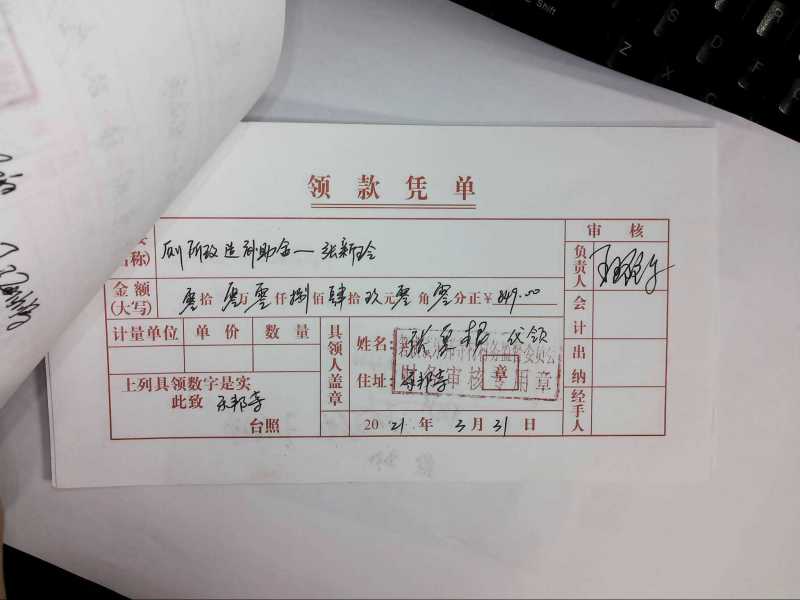 领款凭单
审核
称)
厕所改造补助金—张新玲
负责人
金额
(大写)
零拾零万零仟捌佰肆拾玖元零角零分正¥849.00
会计
计量单位 单价 数量
具领人盖章
姓名: 代领
财务审核专用章
住址:
出纳
上列具领数字是实
此致
台照
2021年3月31日
经手人
Shift
S
D
F
Z
X
C